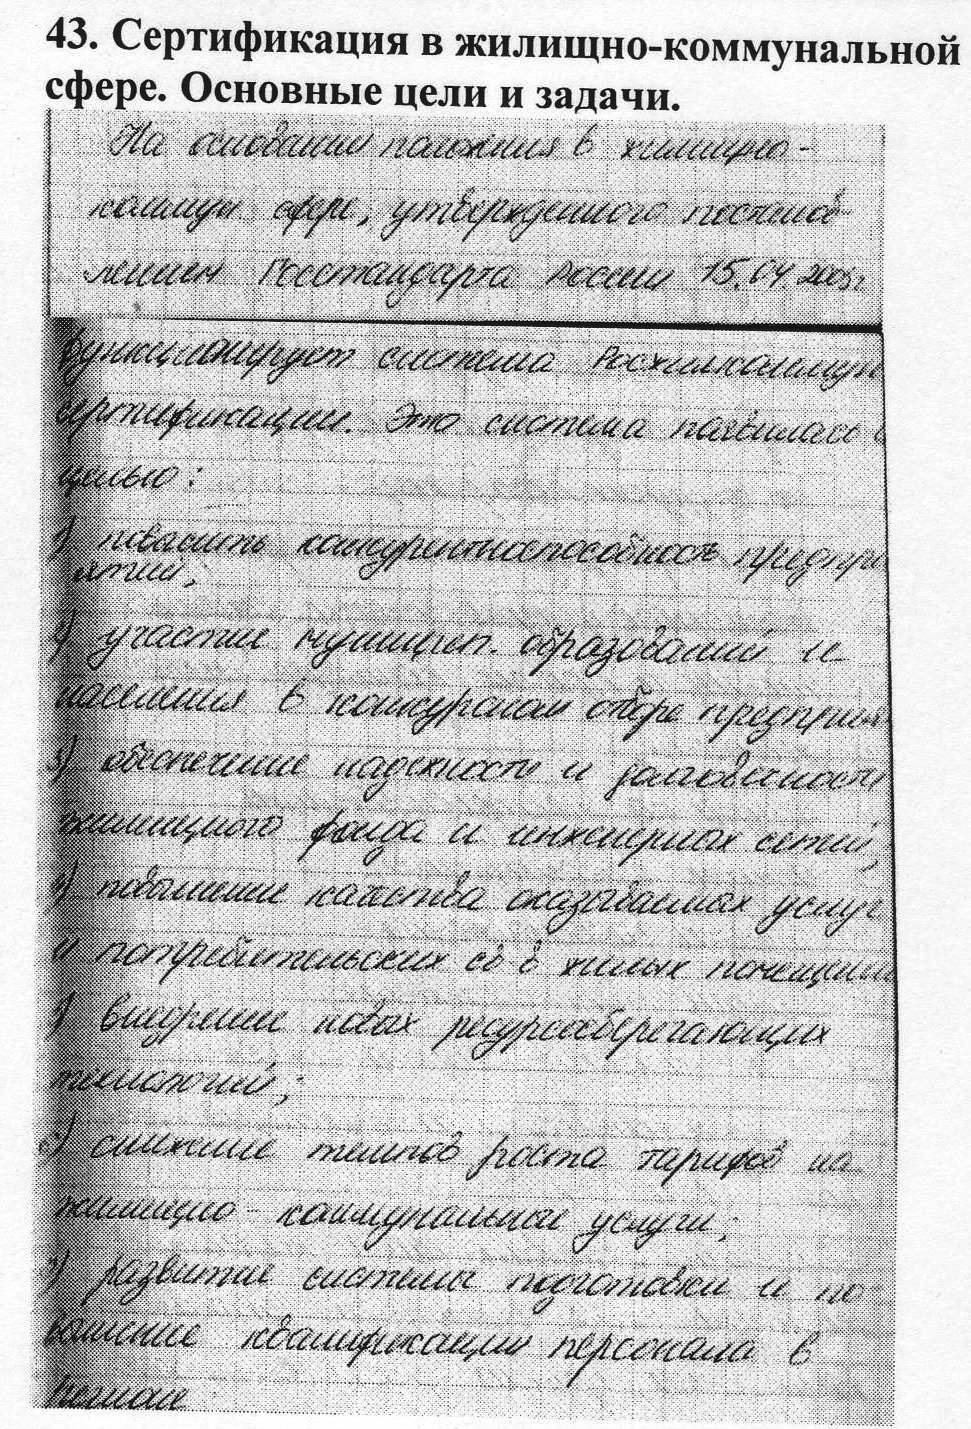 43. Сертификация в жилищно-коммунальной
сфере. Основные цели и задачи.
На основании положения в жилищно-
коммун. сфере, утвержденного постанов
лением Госстандарта России 15.04.2003г
функционирует система Росжилкоммун
сертификации. Это система появилась с
целью:
1) повысить конкурентноспособность предпри
ятий;
2) участие муницип. образований и
населения в конкурсном отборе предприят
3) обеспечение надежности и долговечности
жилищного фонда и инженерных сетей;
4) повышение качества оказываемых услуг
и потребительских св-в жилых помещений
5) внедрение новых ресурсосберегающих
технологий;
6) снижение темпов роста тарифов на
жилищно-коммунальные услуги;
7) развитие системы подготовки и по
вышение квалификации персонала в
регионе